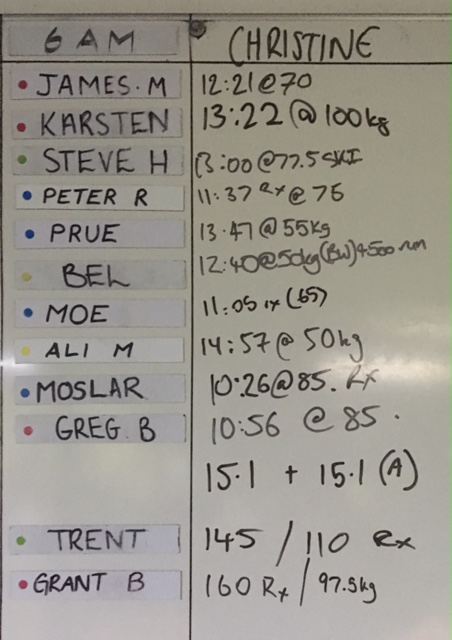 6 AM CHRISTINE
JAMES. M 12:21@70
KARSTEN 13:22 @ 100kg
STEVE H 13:00 @77.5 SKI
PETER R 11:37 Rx @ 75
PRUE 13.47 @ 55kg
BEL 12:40@50kg(BW) 4500 run
MOE 11:05 rx (65)
ALI M 14:57@ 50kg
MOSLAR 10:26@85. Rx
GREG. B 10:56 @ 85.
15.1 + 15.1 (A)
TRENT 145 / 110 Rx
GRANT B 160 Rx / 97.5kg